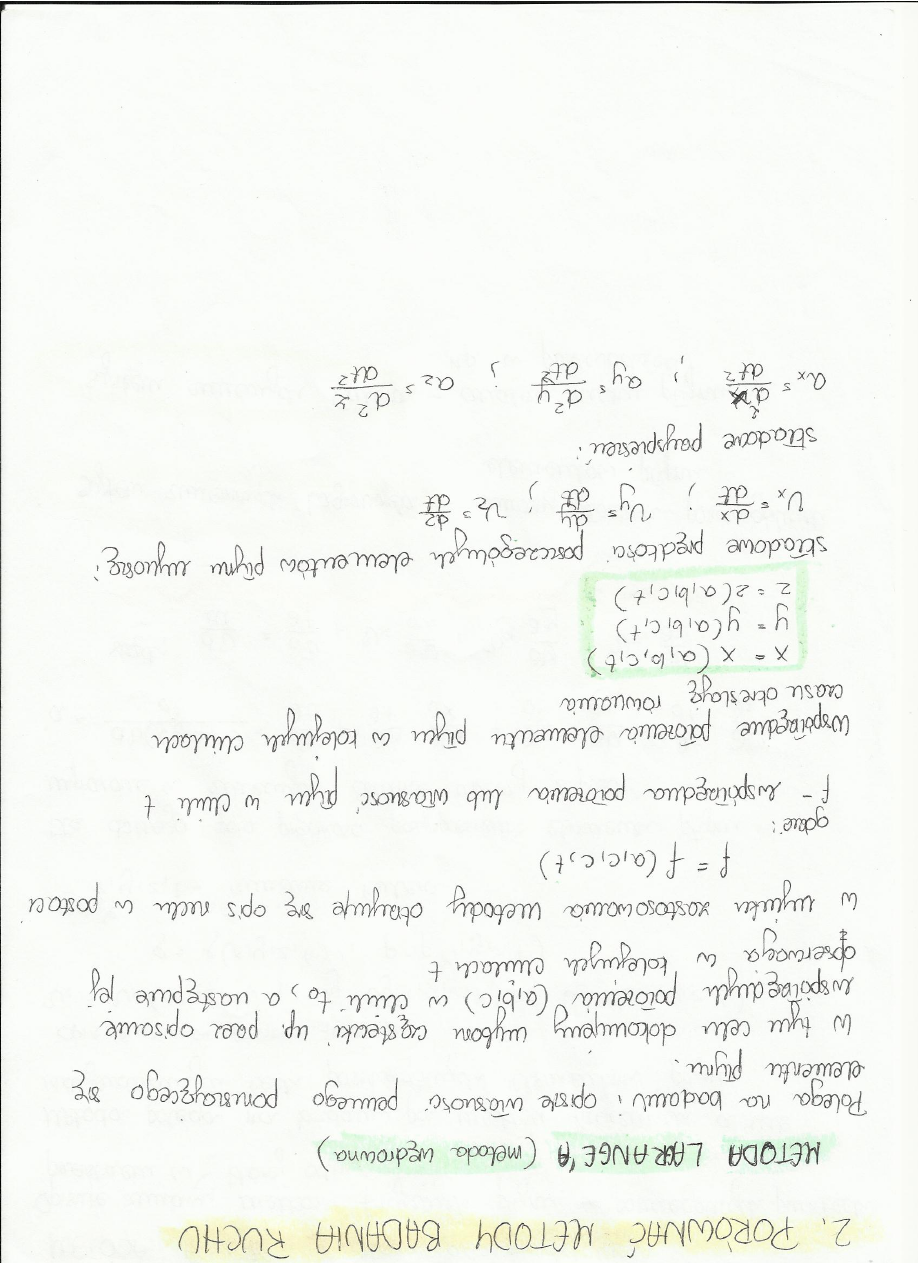 2. PORÓWNAĆ METODY BADANIA RUCHU
METODA LARANGE'A (metoda wędrowna)
Polega na badaniu i opisie własności pewnego poruszającego się
elementu płynu.
W tym celu dokonujemy wyboru cząstecki np. przez opisanie
współrzędnych położenia (a,b,c) w chwili to, a następnie jej
obserwacja w kolejnych chwilach t
W wyniku zastosowania metody otrzymuje się opis ruchu w postaci
f = f (a, c, c, t)
gdzie:
f - współrzędna położenia lub własność płynu w chwili t
Współrzędne położenia elementu płynu w kolejnych chwilach
czasu określają równania
x = x (a, b, c, t)
y = y (a, b, c, t)
z = z (a, b, c, t)
składowe prędkości poszczególnych elementów płynu wynoszą:
Vx = dx/dt ; Vy = dy/dt ; Vz = dz/dt
składowe przyspieszeń:
ax = d²x/dt² ; ay = d²y/dt² ; az = d²z/dt²